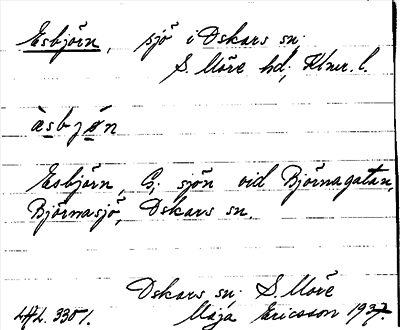 Esbjörn, sjö i Oskars sn;
S. Möre hd; Klmr. l.
èsbjơn
Esbjörn, G; sjön vid Björnagatan,
Björnasjö, Oskars sn.
Oskars sn; S. Möre
ULL. 3351. Maja Ericsson 1937.